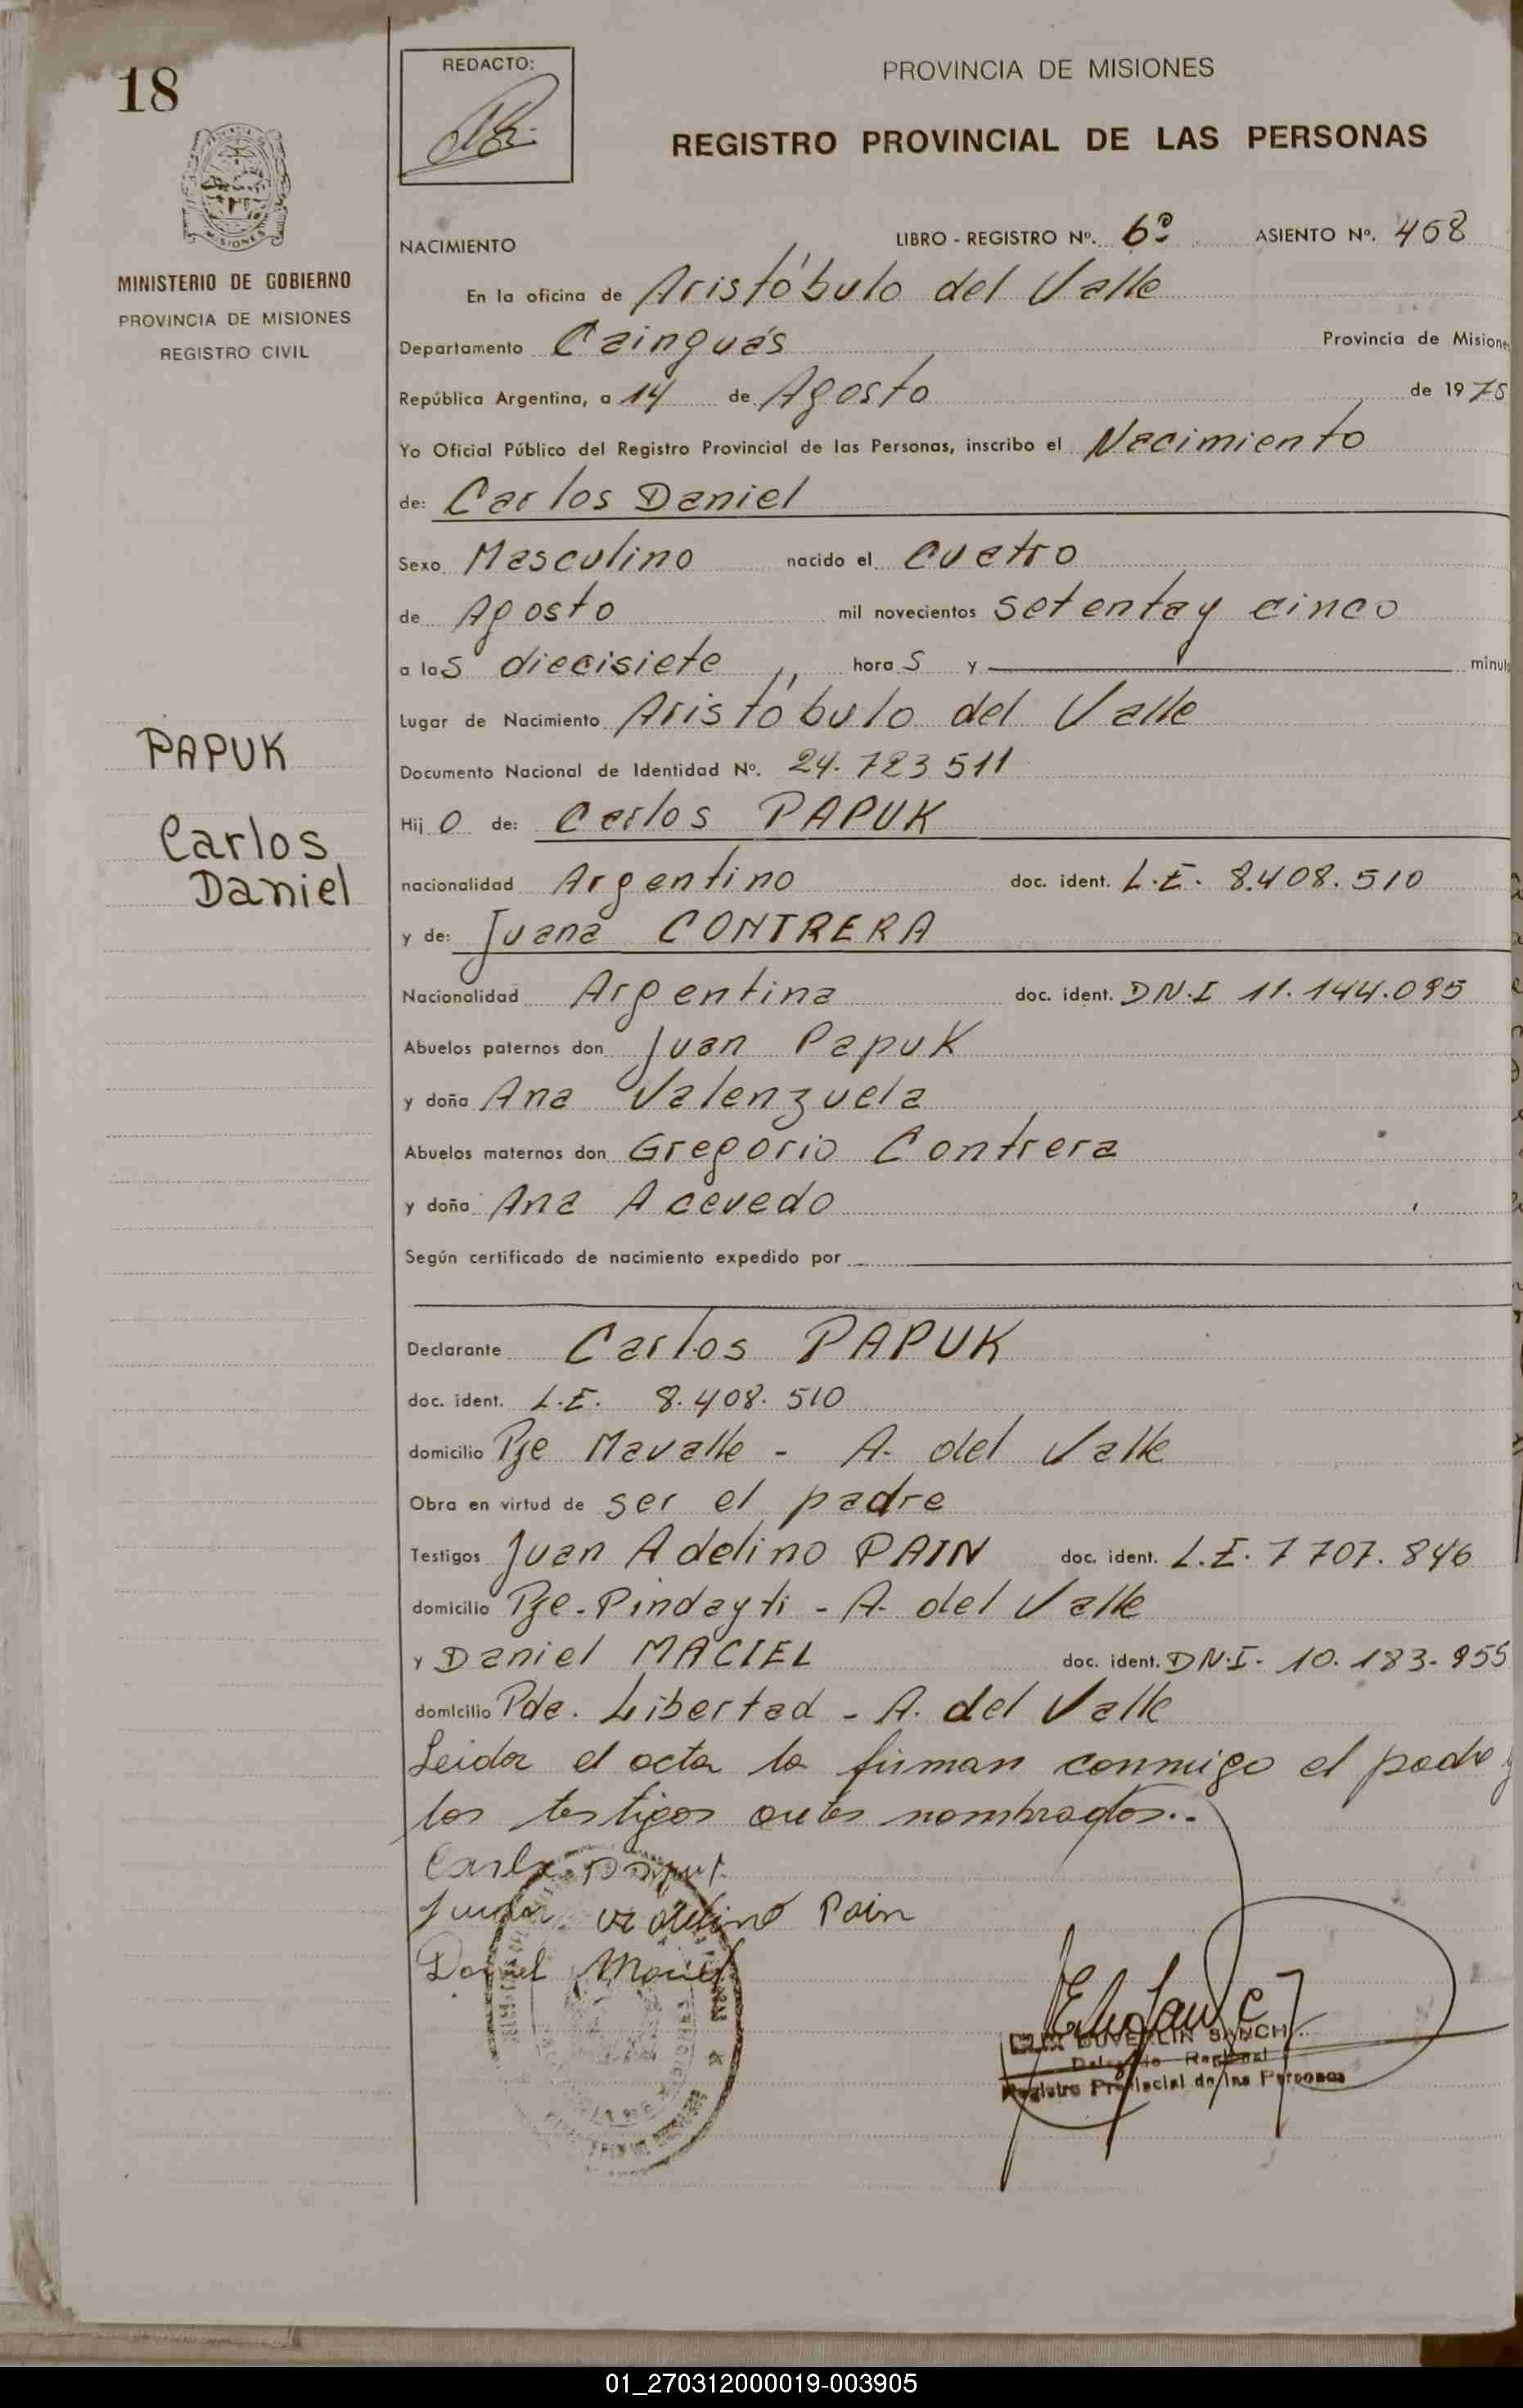 18
REDACTO:
PROVINCIA DE MISIONES
REGISTRO PROVINCIAL DE LAS PERSONAS
MISIONES
MINISTERIO DE GOBIERNO
PROVINCIA DE MISIONES
REGISTRO CIVIL
NACIMIENTO
LIBRO - REGISTRO Nº. 6º ASIENTO Nº. 468
En la oficina de Aristóbulo del Valle
Departamento Cainguás Provincia de Misiones
República Argentina, a 14 de Agosto de 1975
Yo Oficial Público del Registro Provincial de las Personas, inscribo el Nacimiento
de: Carlos Daniel
Sexo Masculino nacido el cuatro
de Agosto mil novecientos setenta y cinco
a las diecisiete ,, horas y minut
Lugar de Nacimiento Aristóbulo del Valle
PAPUK
Carlos
Daniel
Documento Nacional de Identidad Nº. 24.723511
Hijo de: Carlos PAPUK
nacionalidad Argentino doc. ident. L.E. 8.408.510
y de: Juana CONTRERA
Nacionalidad Argentina doc. ident. DN.I 11.144.095
Abuelos paternos don Juan Papuk
y doña Ana Valenzuela
Abuelos maternos don Gregorio Contrera
y doña Ana Acevedo
Según certificado de nacimiento expedido por
Declarante Carlos PAPUK
doc. ident. L.E. 8.408.510
domicilio Pje Mavalle - A. del Valle
Obra en virtud de ser el padre
Testigos Juan Adelino PAIN doc. ident. L.E. 7 707.846
domicilio Pje. Pindayti - A. del Valle
y Daniel MACIEL doc. ident. DN.I. 10.183.955
domicilio Pda. Libertad - A. del Valle
Leida el acta la firman conmigo el padre y
los testigos antes nombrados..
Carlos Papuk
Juan adelino Pain
Daniel Maciel
DUVERLIN SANCH
Delegado Regional
Registro Provincial de las Personas
01_270312000019-003905